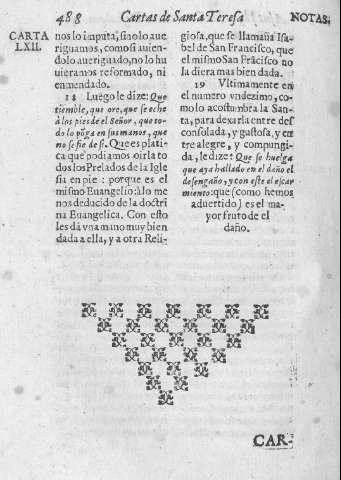 488 Cartas de Santa Teresa NOTAS.
CARTA
LXII.
nos lo imputa, si solo aue
riguamos, como si auien-
dolo aueriguado, no lo hu
uieramos reformado, ni
enmendado.
18 Luego le dize: Que
tiemble, que ore, que se eche
à los pies del Señor, que to-
do lo põga en sus manos, que
no se fie de si. Que es platica
que podiamos oirla to
dos los Prelados de la Igle
sia en pie: porque es el
mismo Euangelio: à lo me
nos deducido de la doctri
na Euangelica. Con esto
les dà vna mano muy bien
dada a ella, y a otra Reli-
giosa, que se llamaua Isa-
bel de San Francisco, que
el mismo San Frãcisco no
la diera mas bien dada.
19 Vltimamente en
el numero vndezimo, co-
mo lo acostumbra la San-
ta, para dexarla entre des
consolada, y gustosa, y en
tre alegre, y compungi-
da, le dize: Que se huelga
que aya hallado en el daño el
desengaño, y con este el escar
miento: que (como hemos
aduertido) es el ma-
yor fruto de el
daño.
CAR-